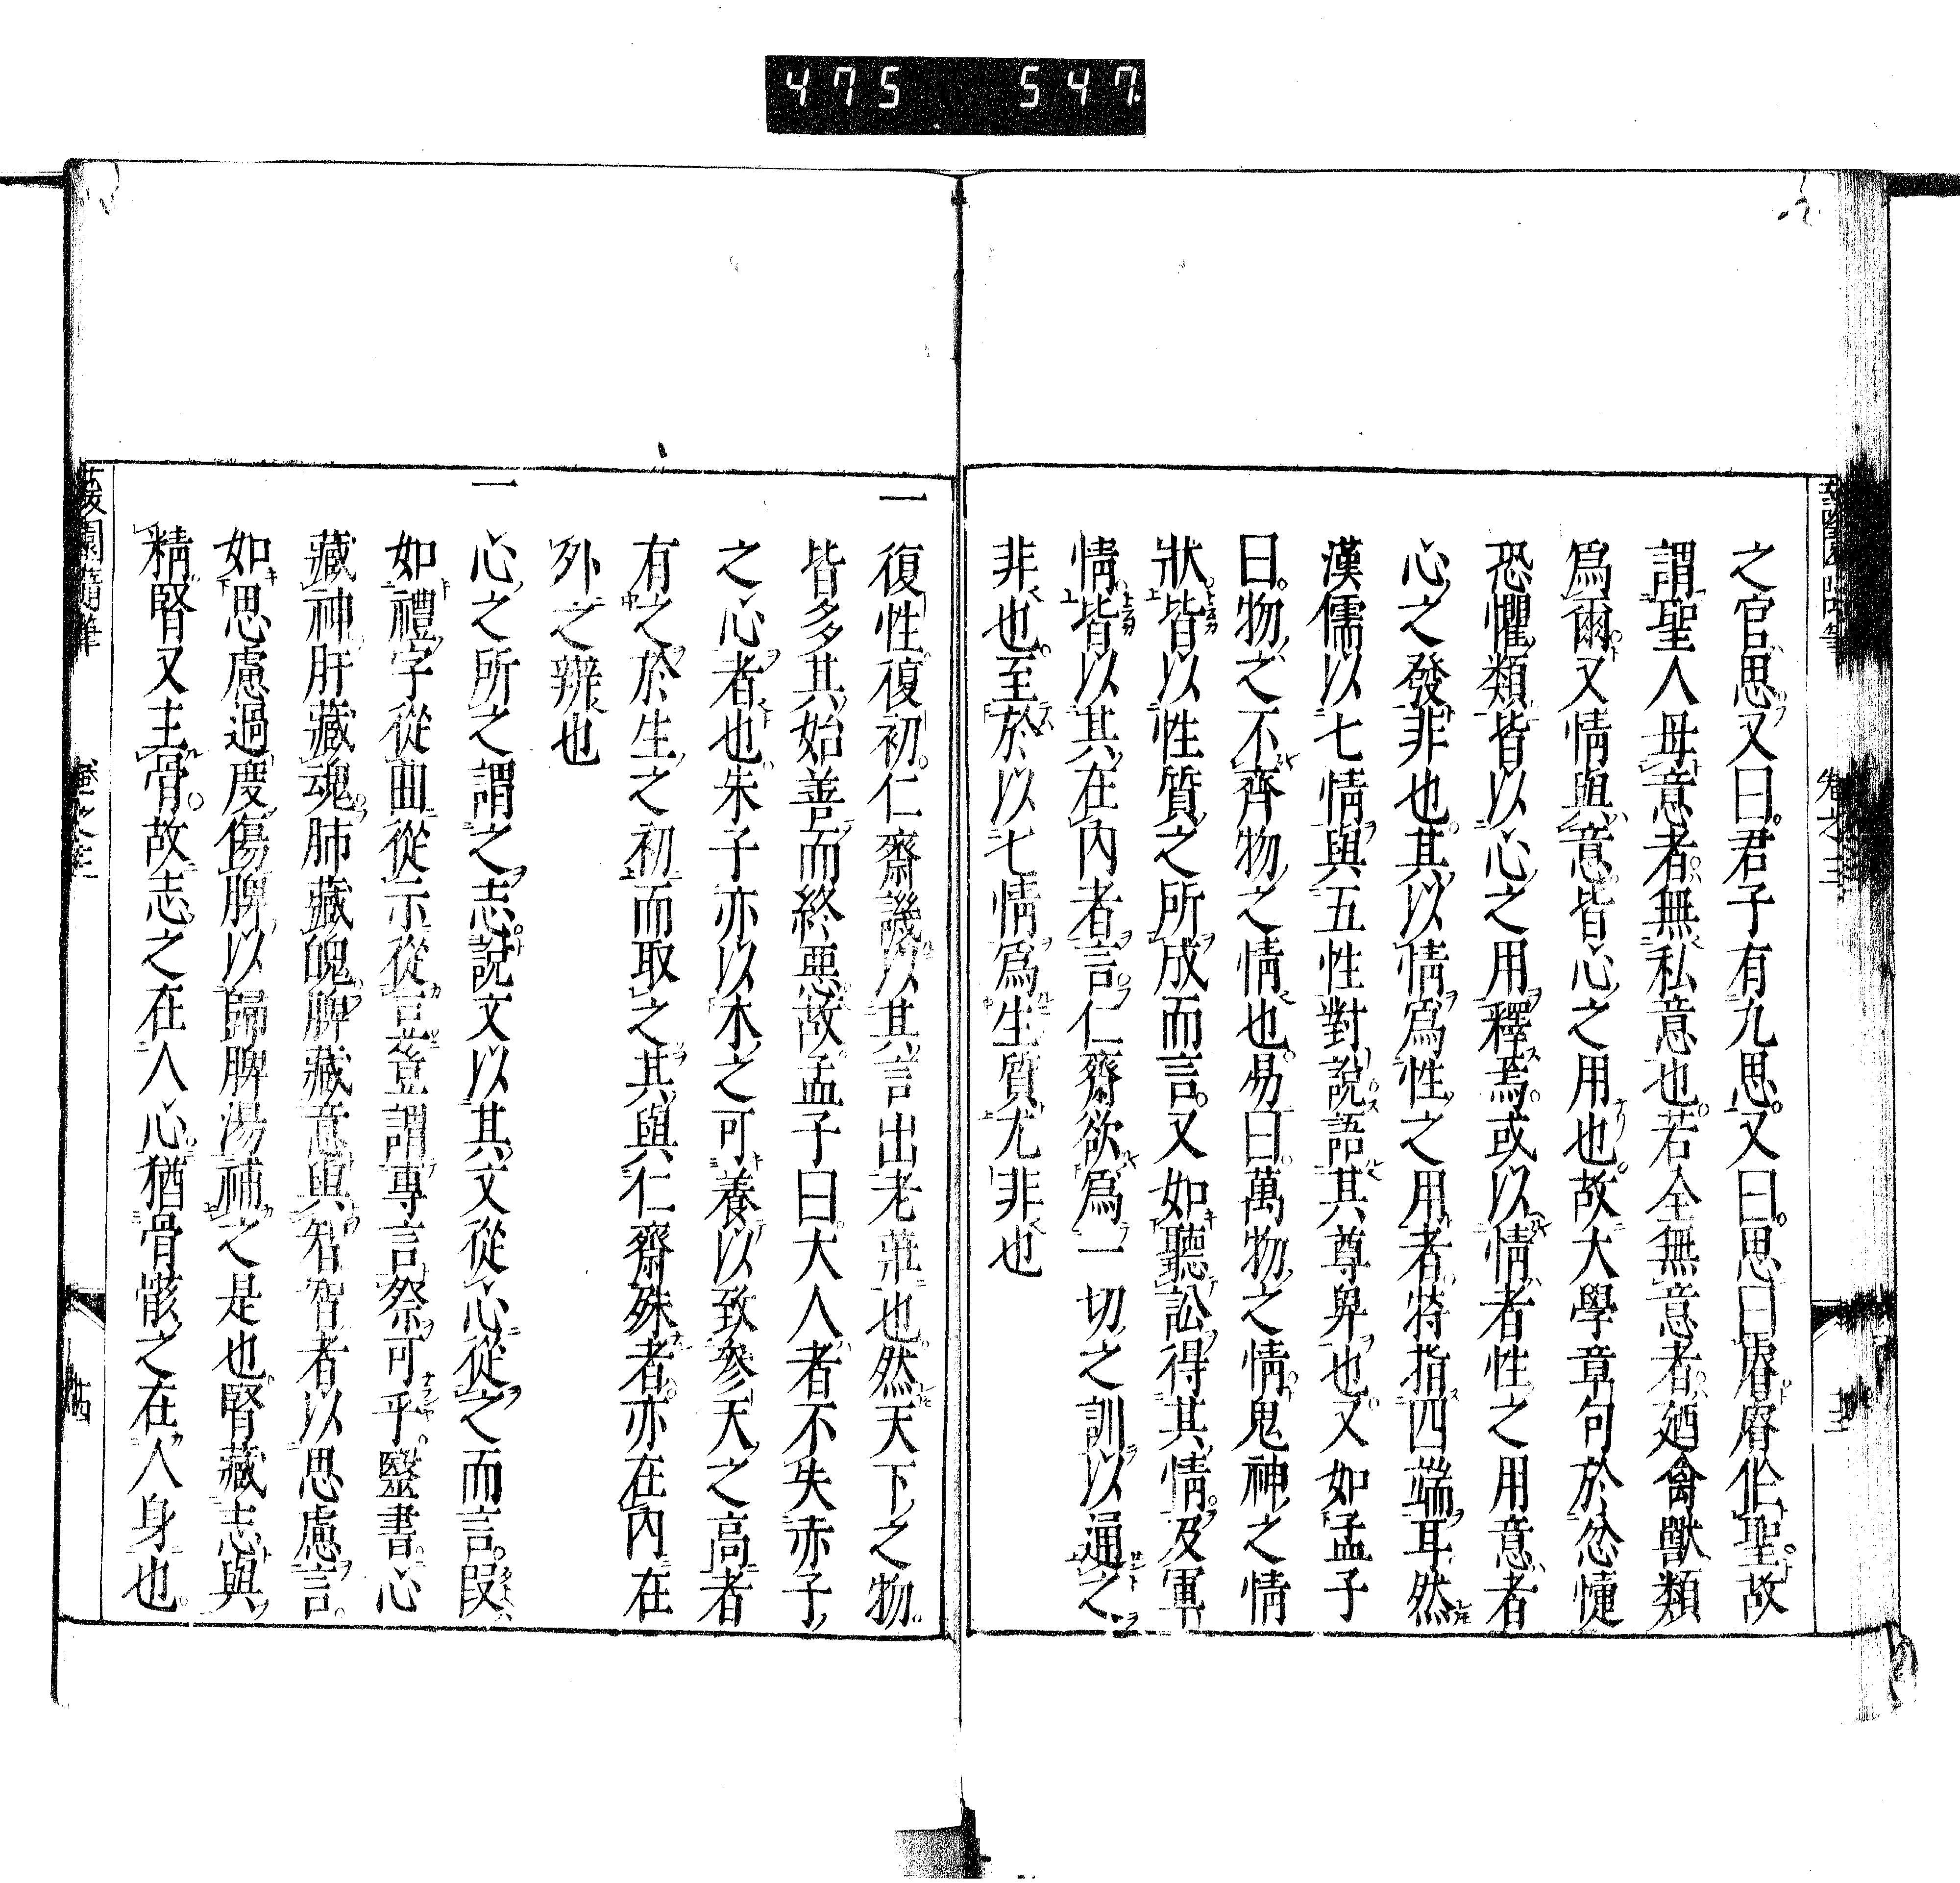 475 547
之官思又曰君子有九思又曰思曰睿睿作聖故
謂聖人毋意者無私意也若全無意者廼禽獸類
爲爾又情與意皆心之用也故大學章句於忿懥
恐懼類皆以心之用釋焉或以情者性之用意者
心之發非也其以情爲性之用者特指四端耳然
漢儒以七情與五性對說語其尊卑也又如孟子
曰物之不齊物之情也易曰萬物之情鬼神之情
狀皆以性質之所成而言又如聽訟得其情及軍
情皆以其在內者言仁齋欲爲一切之訓以通之
非也至於以七情爲生質尤非也
一 復性復初仁齋譏以其言出老莊也然天下之物
皆多其始善而終惡故孟子曰大人者不失赤子
之心者也朱子亦以木之可養以致參天之高者
有之於生之初而取之其與仁齋殊者亦在內在
外之辨也
一 心之所之謂之志說文以其文從心從之而言段
如禮字從曲從示從豆豈謂專言祭可乎醫書心
藏神肝藏魂肺藏魄脾藏意與智智者以思慮言
如思慮過度傷脾以歸脾湯補之是也腎藏志與
精腎又主骨故志之在人心猶骨骸之在人身也
蘐園隨筆 卷之三 十四